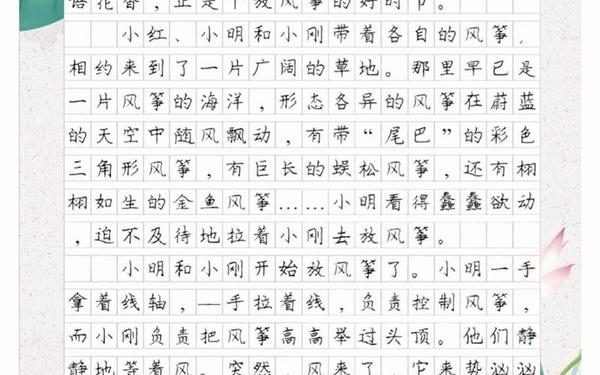 语花香，正是个放风筝的好时节。
小红、小明和小刚带着各自的风筝，
相约来到了一片广阔的草地。那里早已是
一片风筝的海洋，形态各异的风筝在蔚蓝
的天空中随风飘动，有带“尾巴”的彩色
三角形风筝，有巨长的蜈松风筝，还有栩
栩如生的金鱼风筝……小明看得蠢蠢欲动
，迫不及待地拉着小刚去放风筝。
小明和小刚开始放风筝了。小明一手
拿着线轴，一手拉着线，负责控制风筝，
而小刚负责把风筝高高举过头顶。他们静
静地等着风。突然，风来了，它来势汹汹